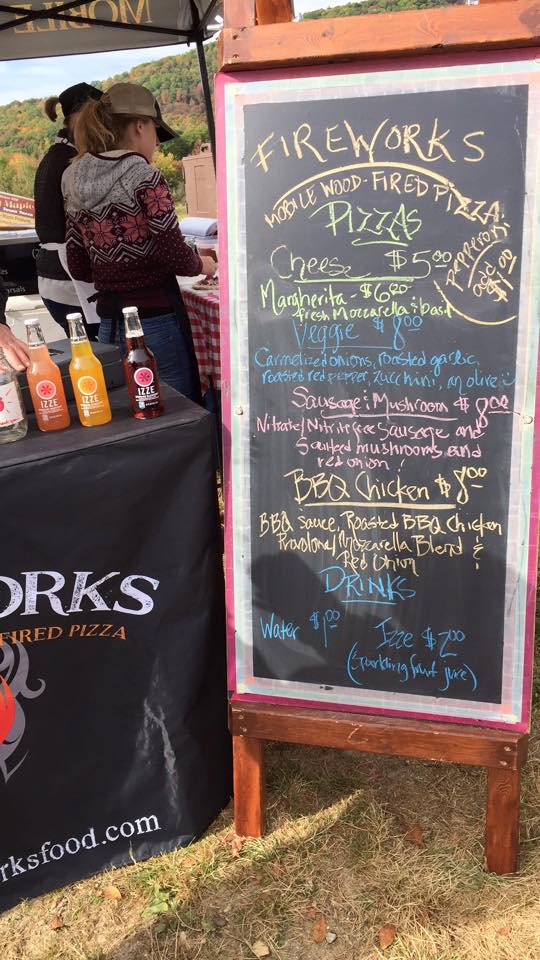 MOBILE
Maple
FIREWORKS
MOBILE WOOD-FIRED PIZZA
PIZZAS
Cheese $5.00
Pepperoni
add
$1.00
Margherita - $6.00
fresh Mozzarella & basil
Veggie $8.00
Carmelized onions, roasted garlic,
roasted red pepper, zucchini, an olive
Sausage & Mushroom $8.00
Nitrate/Nitrite free sausage and
Sauteed mushrooms and
red onion!
BBQ Chicken $8.00
BBQ Sauce, Roasted BBQ Chicken
Provolone/Mozzarella Blend &
Red Onion
DRINKS
Water $1.00
Izze $2.00
(Sparkling fruit juice)
IZZE
IZZE
IZZE
ORKS
FIRED PIZZA
rksfood.com